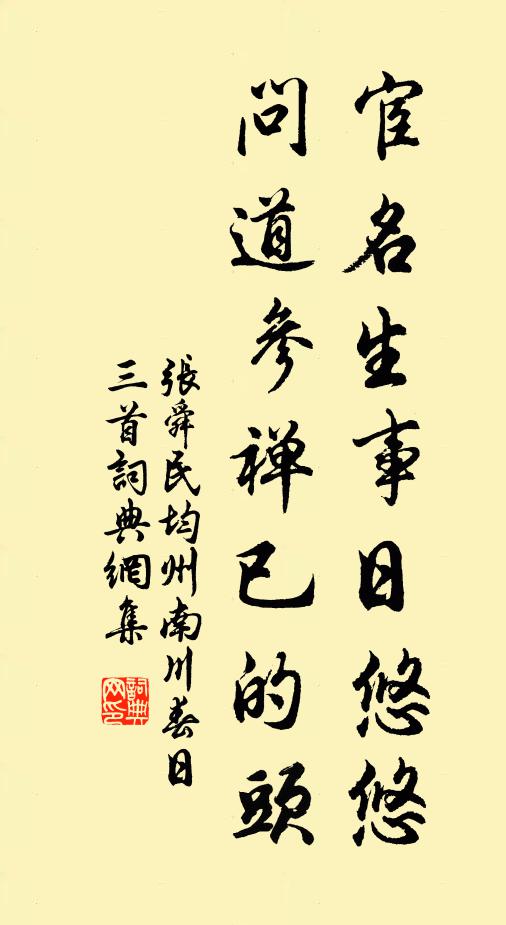 宦名生事日悠悠
問道參禅已的頭
張舜民均州南川春日
三首詞典網集
詞典网印